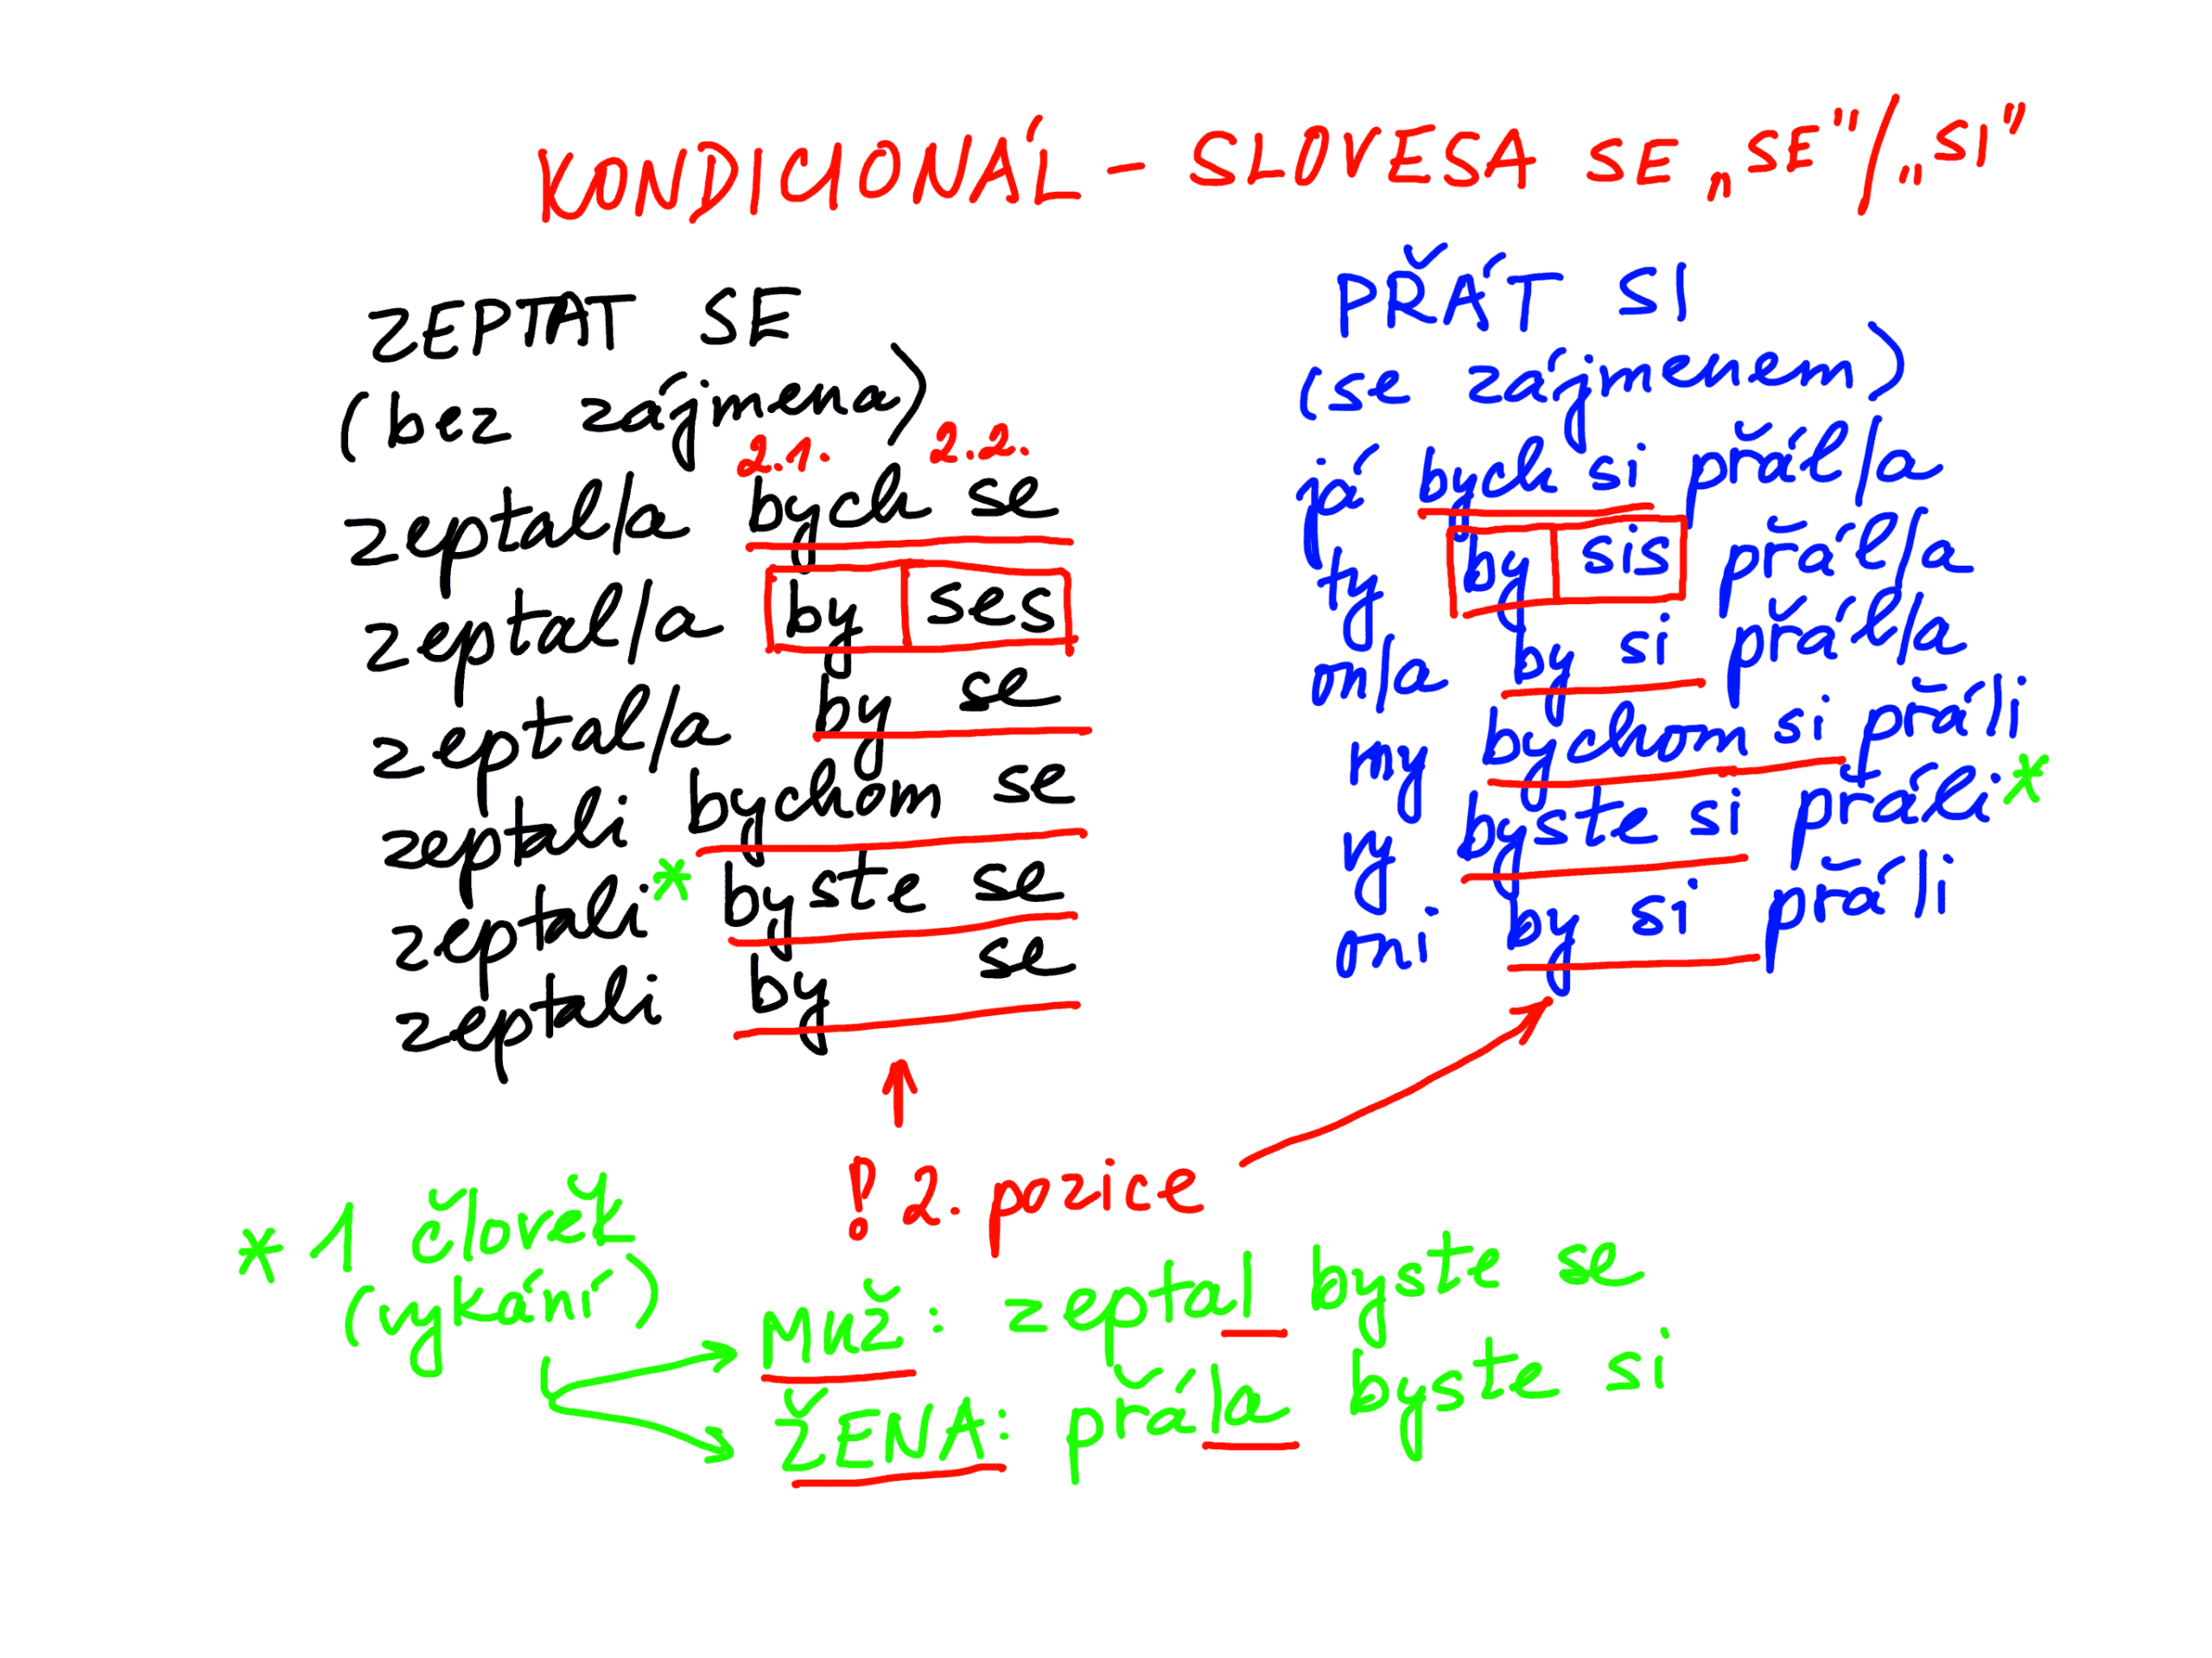 KONDICIONÁL - SLOVESA SE „SE"/„SI"
ZEPTAT SE
(bez zájmena)
2.1. 2.2.
zeptal/a bych se
zeptal/a by ses
zeptal/a by se
zeptali bychom se
zeptali* byste se
zeptali by se
PŘÁT SI
(se zájmenem)
já bych si přál/a
ty by sis přál/a
on/a by si přál/a
my bychom si přáli
vy byste si přáli*
oni by si přáli
! 2. pozice
* 1 člověk
(vykání)
MUŽ: zeptal byste se
ŽENA: přála byste si